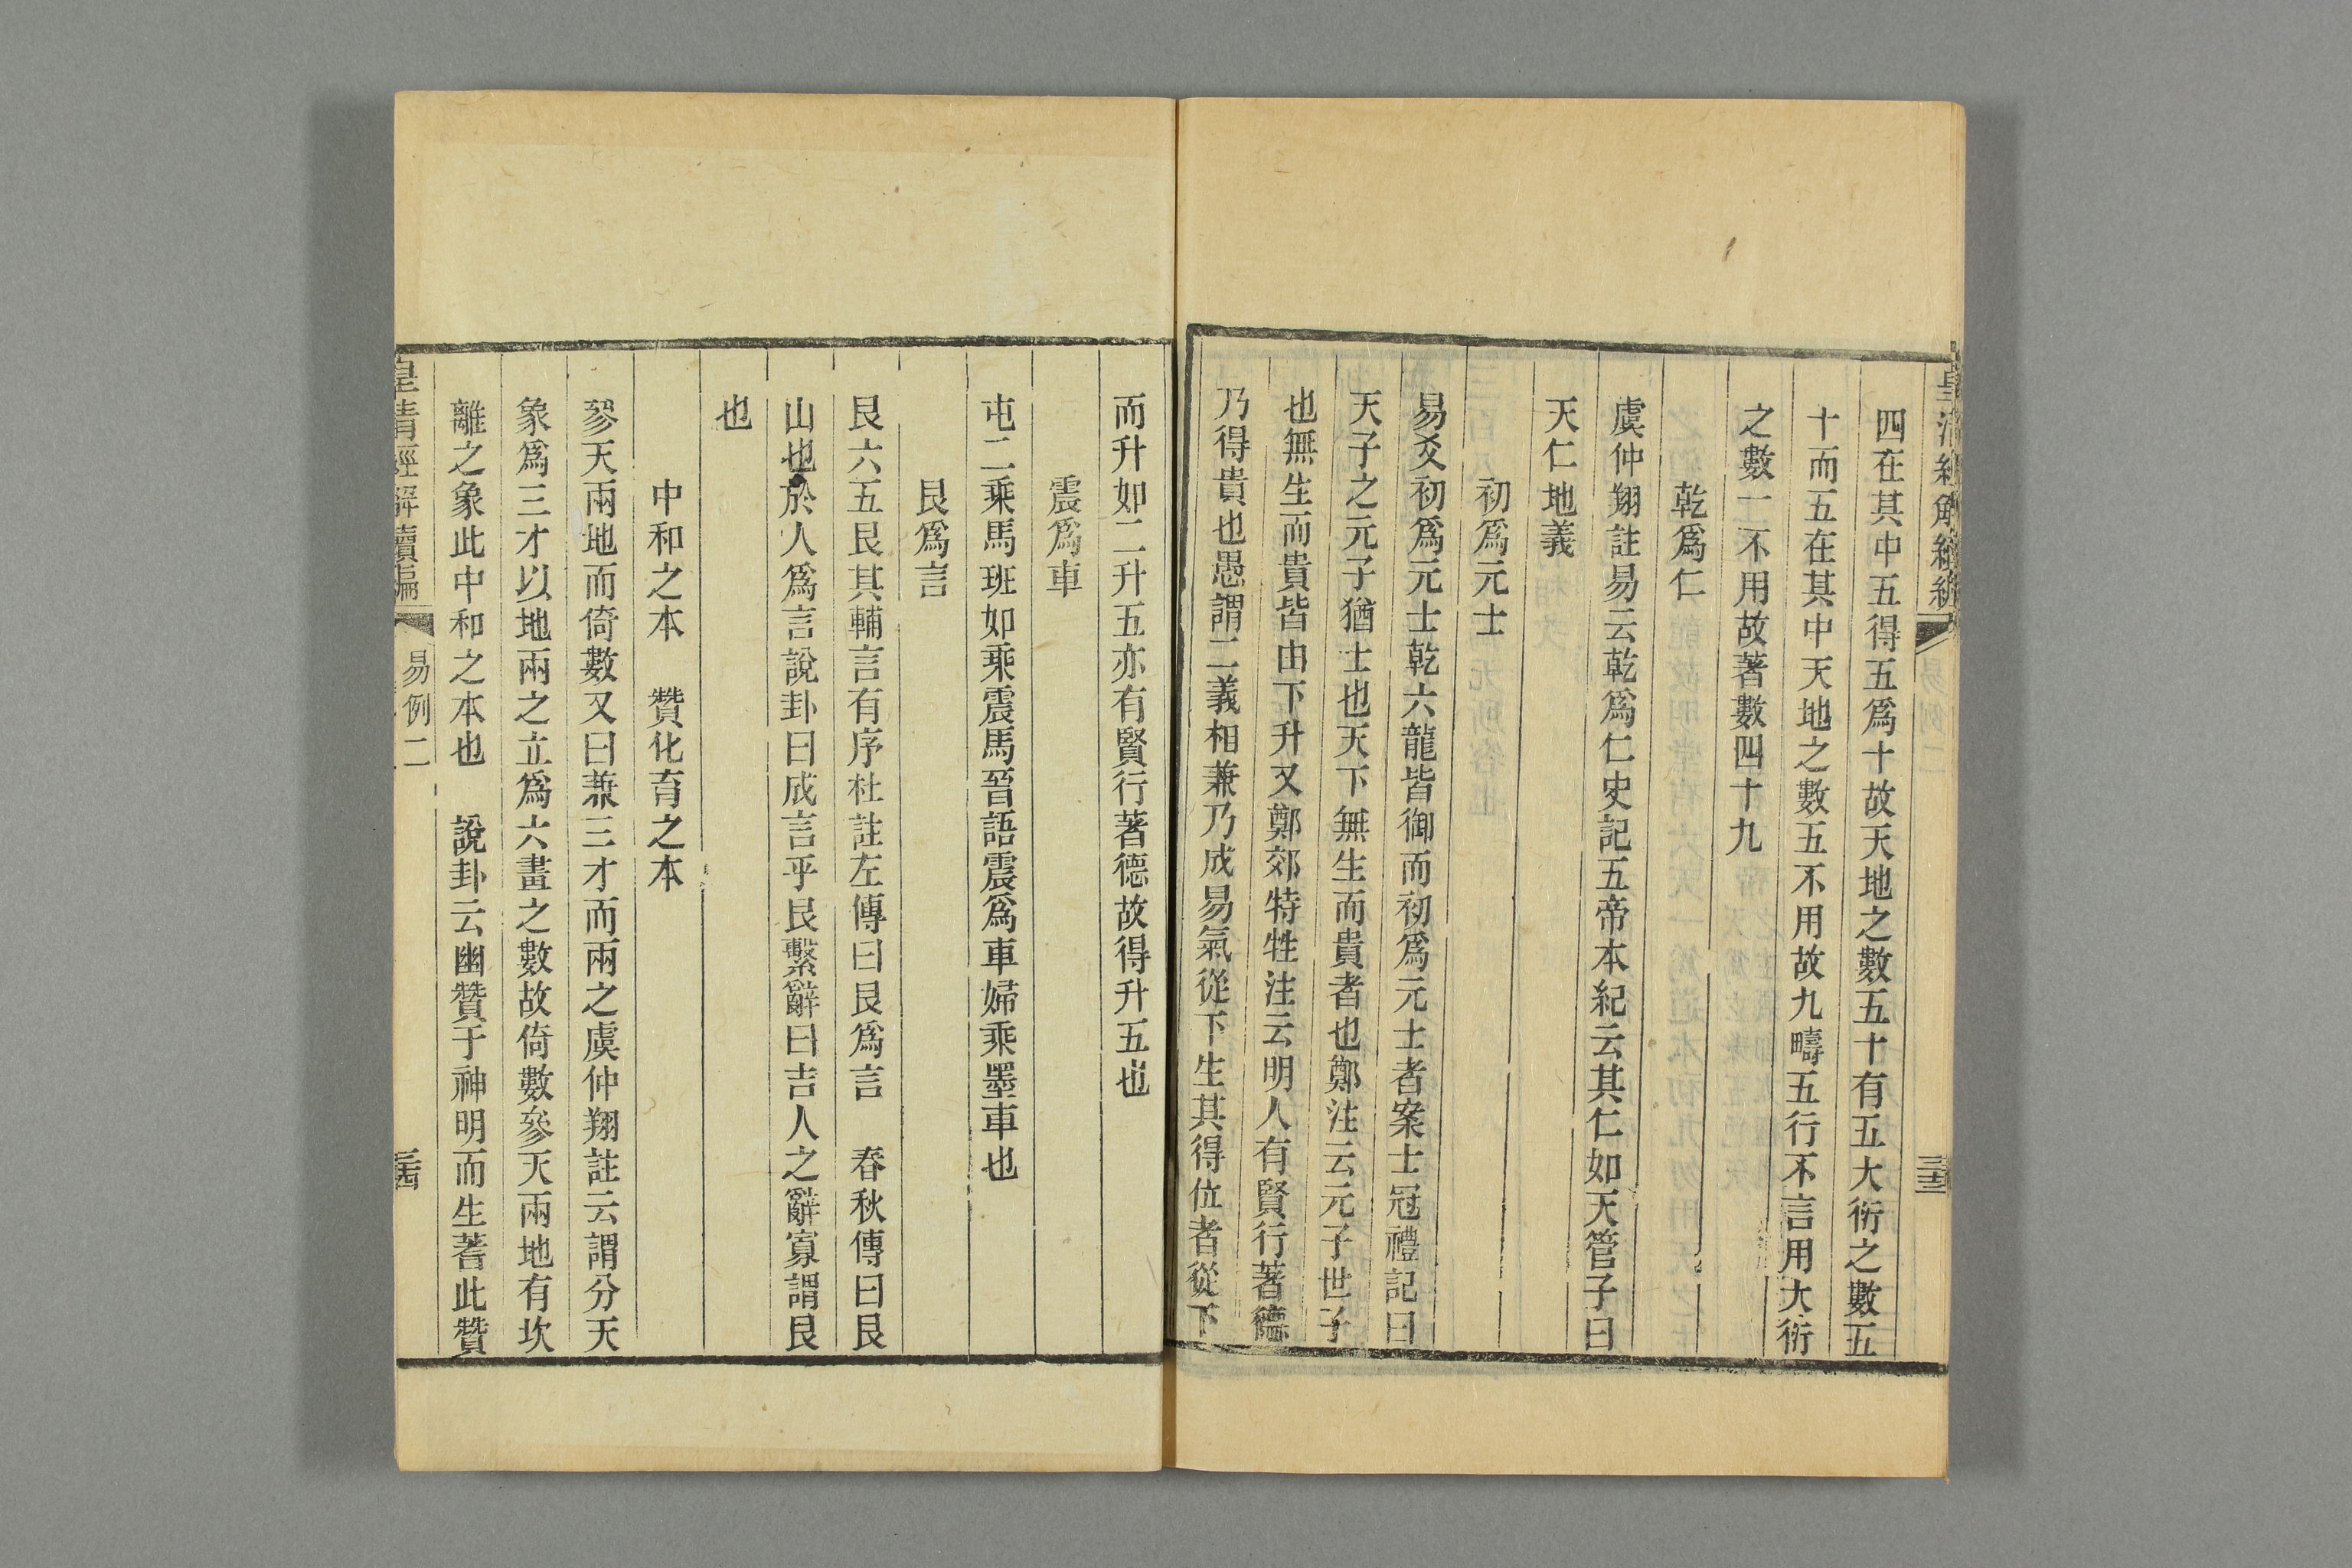 四在其中五得五爲十故天地之數五十有五大衍之數五
十而五在其中天地之數五不用故九疇五行不言用大衍
之數一不用故著數四十九
乾爲仁
虞仲翔註易云乾爲仁史記五帝本紀云其仁如天管子曰
天仁地義
初爲元士
易爻初爲元士乾六龍皆御而初爲元士者案士冠禮記曰
天子之元子猶士也天下無生而貴者也鄭注云元子世子
也無生而貴皆由下升又鄭郊特牲注云明人有賢行著德
乃得貴也愚謂二義相兼乃成易氣從下生其得位者從下
而升如二升五亦有賢行著德故得升五也
震爲車
屯二乘馬班如乘震馬晉語震爲車婦乘墨車也
艮爲言
艮六五艮其輔言有序杜註左傳曰艮爲言　春秋傳曰艮
山也於人爲言說卦曰成言乎艮繫辭曰吉人之辭寡謂艮
也
中和之本　贊化育之本
參天兩地而倚數又曰兼三才而兩之虞仲翔註云謂分天
象爲三才以地兩之立爲六畫之數故倚數參天兩地有坎
離之象此中和之本也　說卦云幽贊于神明而生蓍此贊
皇清經解續編
易例二
三四